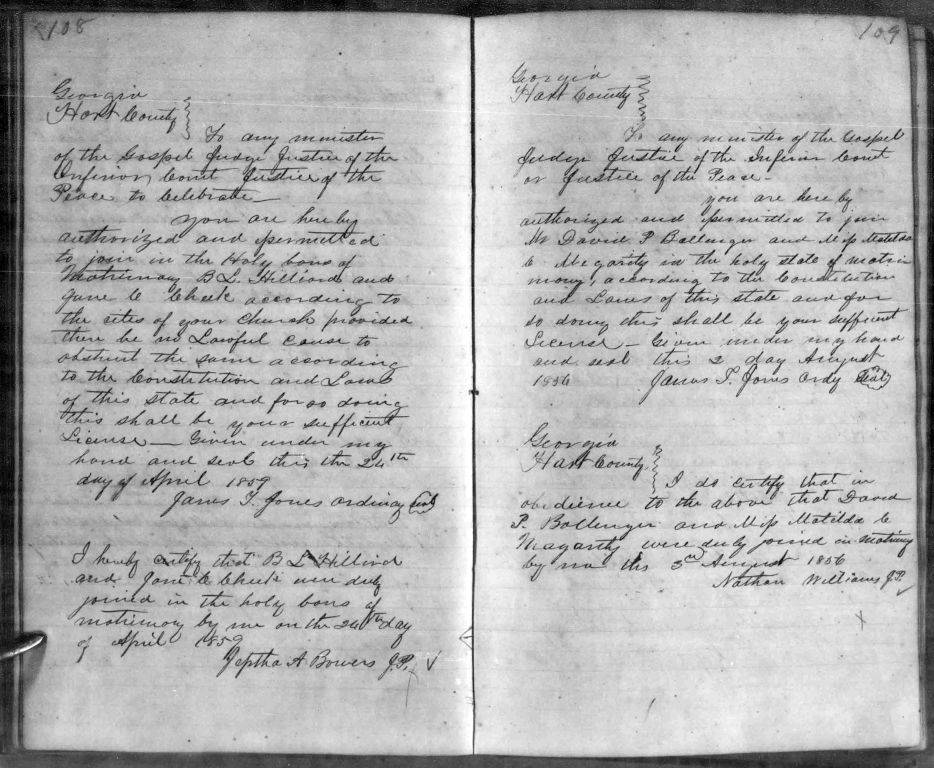 108
Georgia
Hart County
To any minister
of the Gospel Judge Justice of the
Inferior Court Justice of the
Peace to Celebrate
You are hereby
authorized and permitted
to join in the Holy bons of
Matrimony B L Hilliard and
Jane C Cheek according to
the rites of your Church provided
there be no Lawful cause to
obstruct the same according
to the Constitution and Laws
of this state and for so doing
this shall be your sufficient
License — Given under my
hand and seal this the 24th
day of April 1859
James T. Jones ordinary Seal
I hereby certify that B L Hilliard
and Jane C Cheek were duly
joined in the holy bons of
matrimony by me on the 24th day
of April 1859
Jeptha A Bowers J.P.
109
Georgia
Hart County
To any minister of the Gospel
Judge Justice of the Inferior Court
or Justice of the Peace —
you are here by
authorized and permitted to join
Mr David P Ballenger and Miss Matilda
C Megarity in the holy state of matri
mony, according to the Constitution
and Laws of this state and for
so doing this shall be your sufficient
License — Given under my hand
and seal this 2 day August
1856 James T. Jones Ordy Seal
Georgia
Hart County
I do certify that in
obedience to the above that David
P. Ballenger and Miss Matilda C
Magarity were duly joined in matrimony
by me this 3rd August 1856
Nathan Williams J.P.